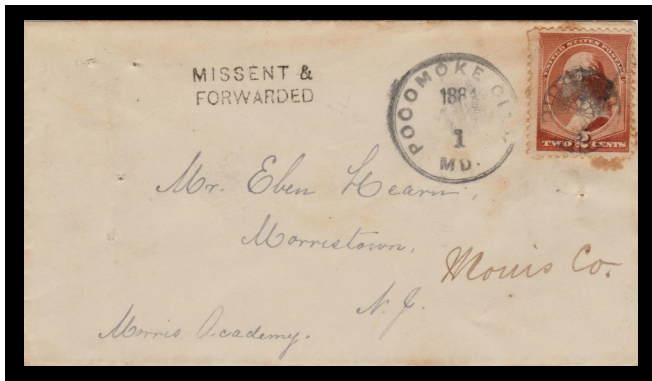 MISSENT &
FORWARDED
POCOMOKE CITY
188
1
MD.
UNITED STATES POSTAGE
2
TWO CENTS
Mr. Eben Hearn,
Morristown,
Morris Co.
N. J.
Morris Academy.